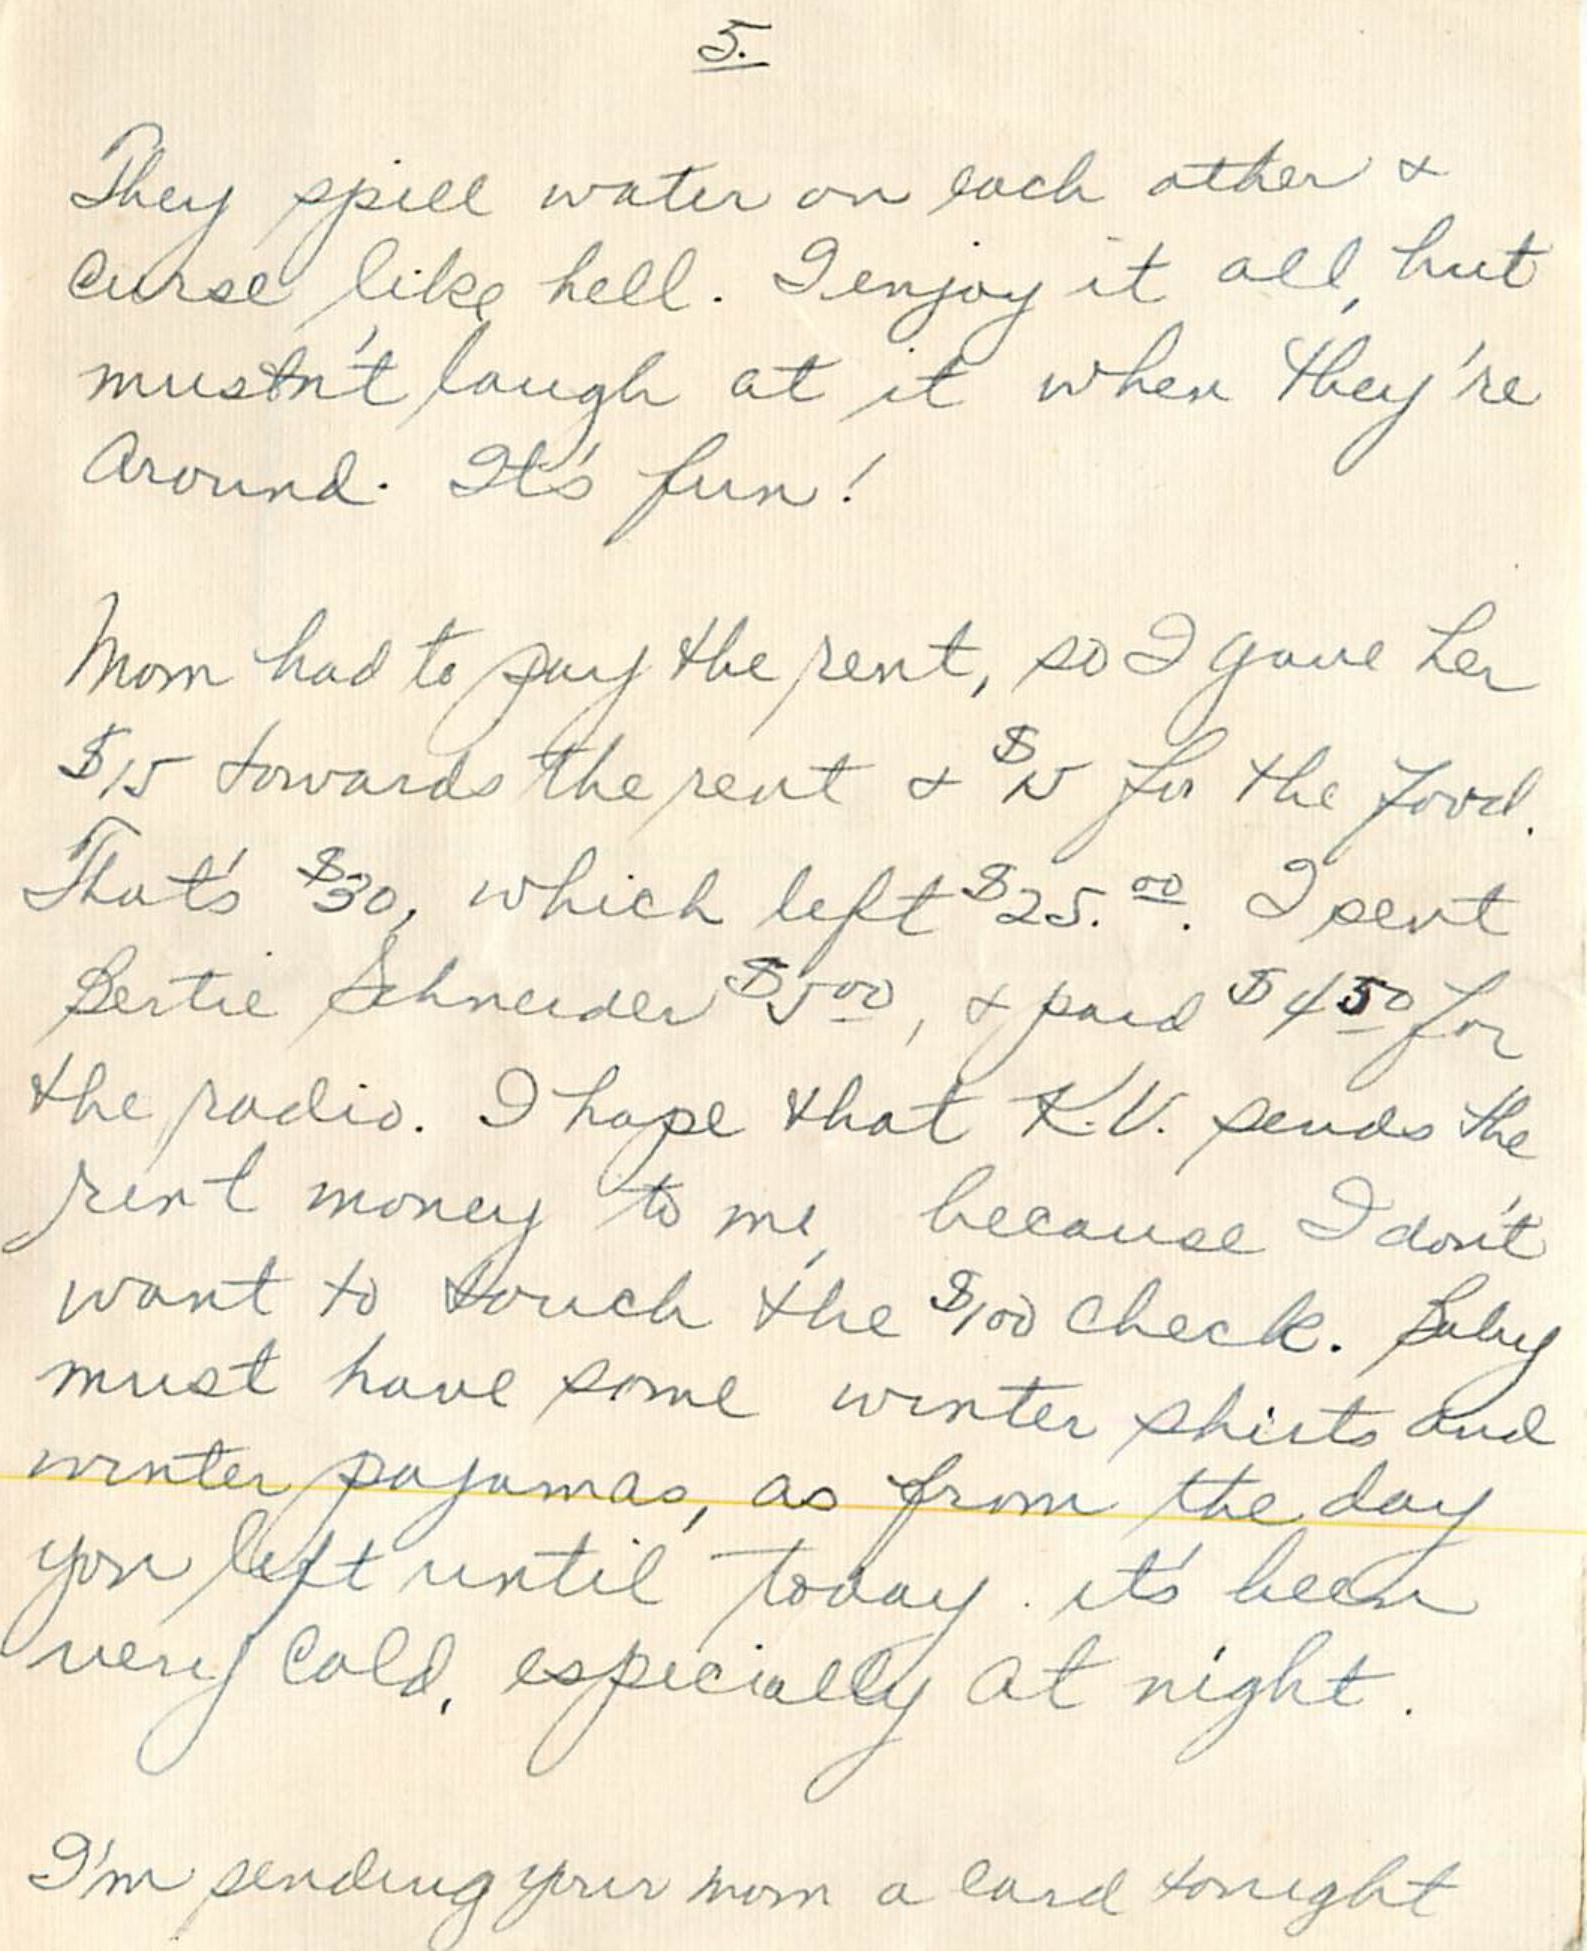 5.
They spill water on each other &
curse like hell. I enjoy it all, but
mustn't laugh at it when they're
around. It's fun!
Mom had to pay the rent, so I gave her
$15 towards the rent & $15 for the food.
That's $30, which left $25.00. I sent
Bertie Schneider $5.00, & paid $4.50 for
the radio. I hope that K.V. sends the
rent money to me, because I don't
want to touch the $100 check. Baby
must have some winter shirts and
winter pajamas, as from the day
you left until today it's been
very cold, especially at night.
I'm sending your mom a card tonight